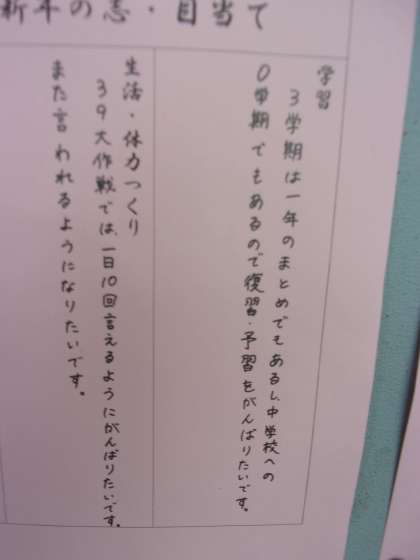 新年の志・目当て
学習
３学期は一年のまとめでもあるし、中学校への
０学期でもあるので復習・予習をがんばりたいです。
生活・体力つくり
３９大作戦では、一日１０回言えるようにがんばりたいです。
また言われるようになりたいです。